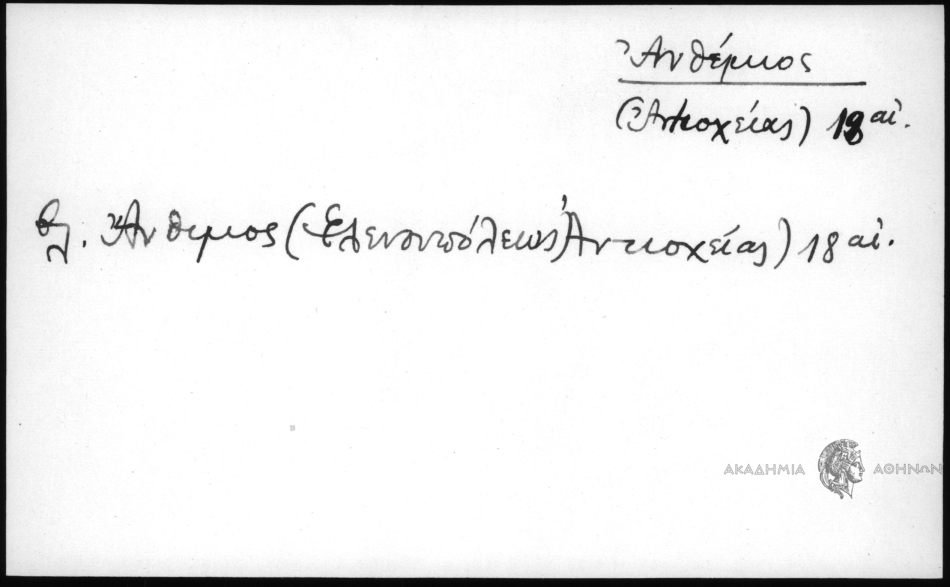 Ἀνθέμιος
(Ἀντιοχείας) 18 αἰ.
βλ. Ἄνθιμος (Ἑλενουπόλεως Ἀντιοχείας) 18 αἰ.
ΑΚΑΔΗΜΙΑ ΑΘΗΝΩΝ